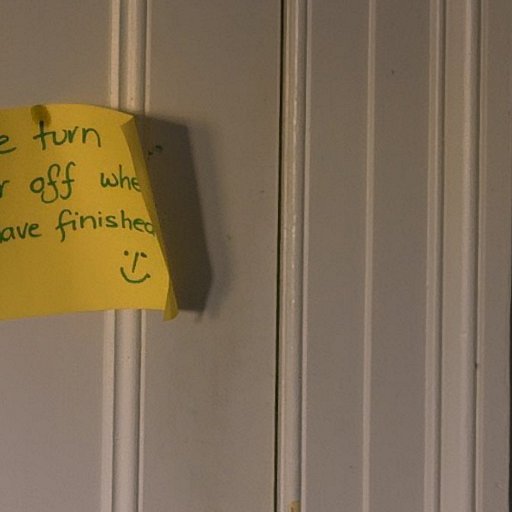 e turn
r off whe
ave finished